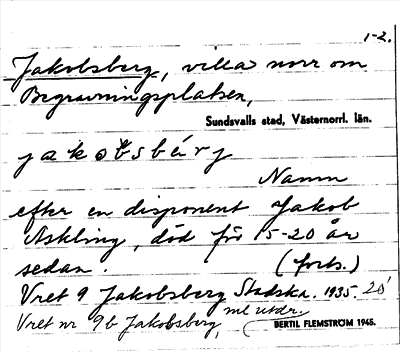 1-2.
Jakobsberg, villa norr om
Begravningsplatsen,
Sundsvalls stad, Västernorrl. län.
jakobsbérj
Namn
efter en disponent Jakob
Askling, död för 15-20 år
sedan. (forts.)
Vret 9 Jakobsberg Stadska. 1935. 20'
Vret nr 9b Jakobsberg,
BERTIL FLEMSTRÖM 1945.